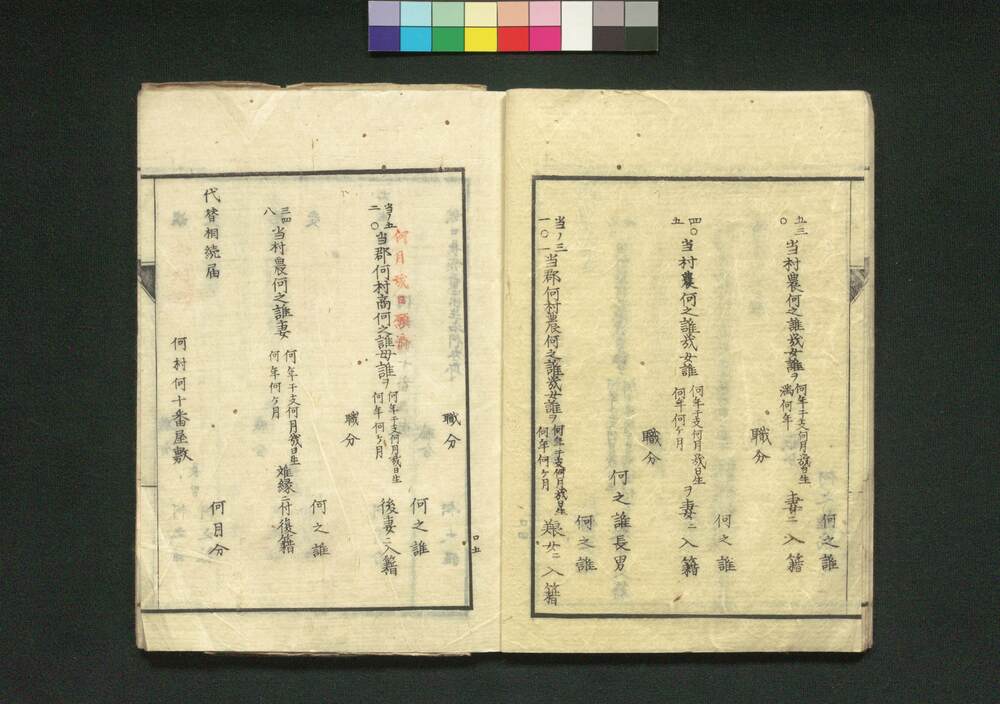 何之誰
五三〇
当村農何之誰幾女誰ヲ
何年干支何月幾日生
満何年
妻ニ入籍
職分
何之誰
四〇五
当村農何之誰幾女誰
何年干支何月幾日生
何年何ヶ月
ヲ妻ニ入籍
職分
何之誰長男
何之誰
当ノ三
一〇一
当郡何村農何之誰幾女誰ヲ
何年干支何月幾日生
何年何ヶ月
入籍
職分
何之誰
何月幾日願済
当ノ五
二〇
当郡何村高何之誰母誰ヲ
何年干支何月幾日生
何年何ヶ月
後妻ニ入籍
職分
何之誰
三四八
当村農何之誰妻
何年干支何月幾日生
何年何ヶ月
離縁ニ付復籍
代替相続届
何月分
何村何十番屋敷